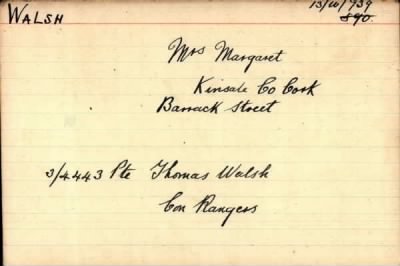 WALSH
13/10/939
890.
Mrs Margaret
Kinsale Co Cork
Barrack Street
3/4443 Pte Thomas Walsh
Con Rangers